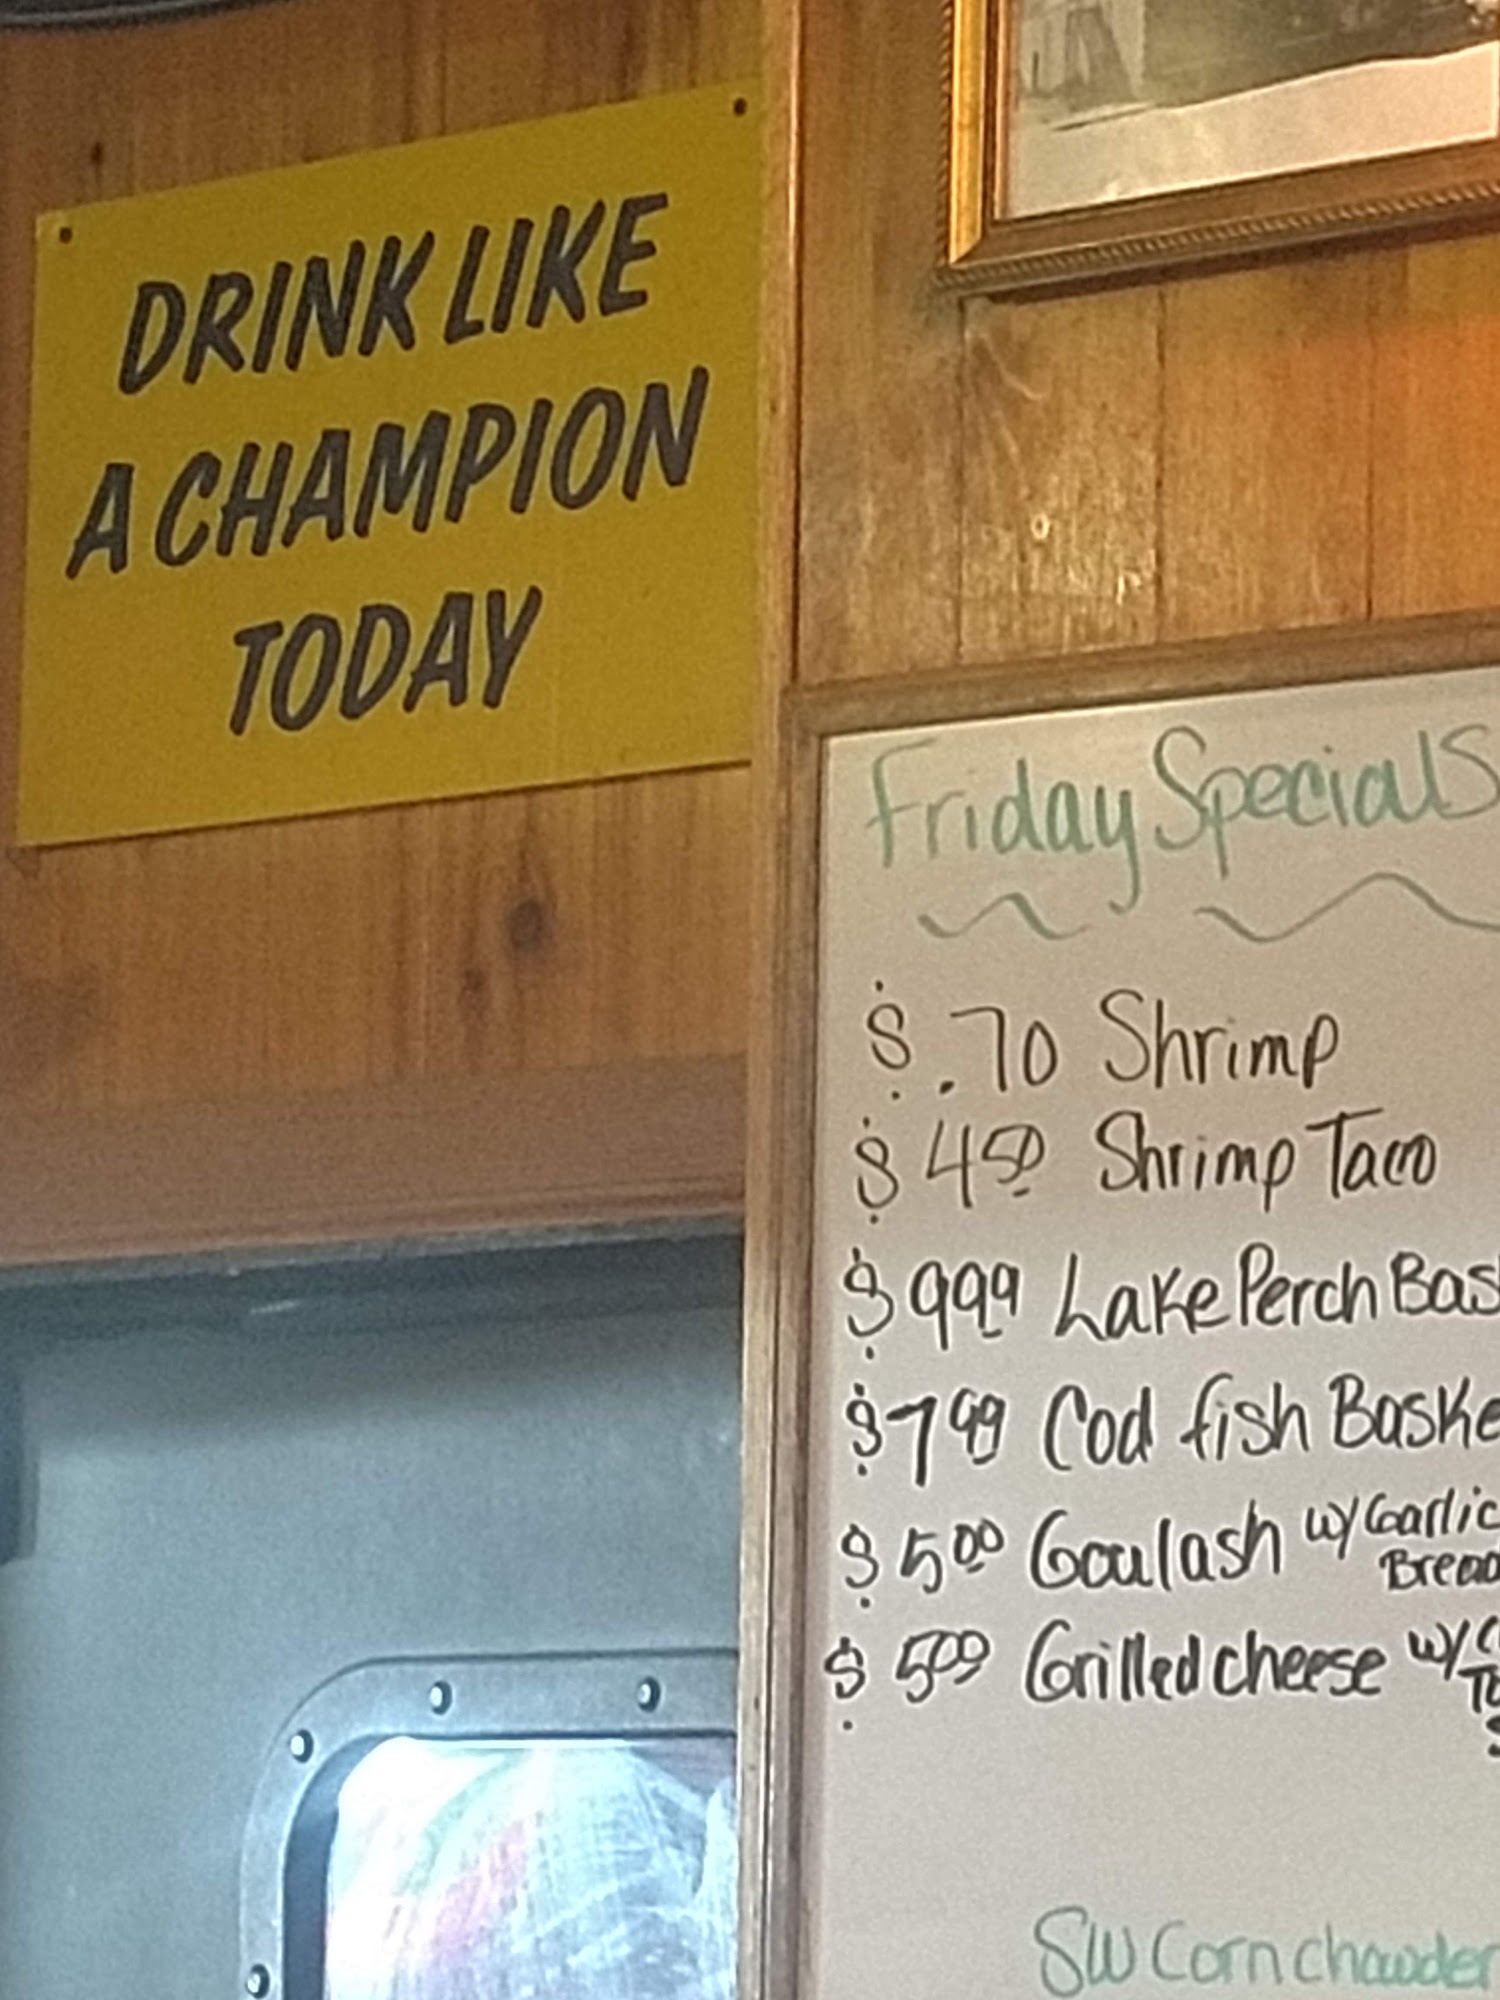 DRINK LIKE
A CHAMPION
TODAY
Friday Specials
$.70 Shrimp
$4.50 Shrimp Taco
$9.99 Lake Perch Bas
$7.99 Cod fish Baske
$5.00 Goulash w/Garlic
Bread
$5.00 Grilled cheese w/
SW Corn chowder